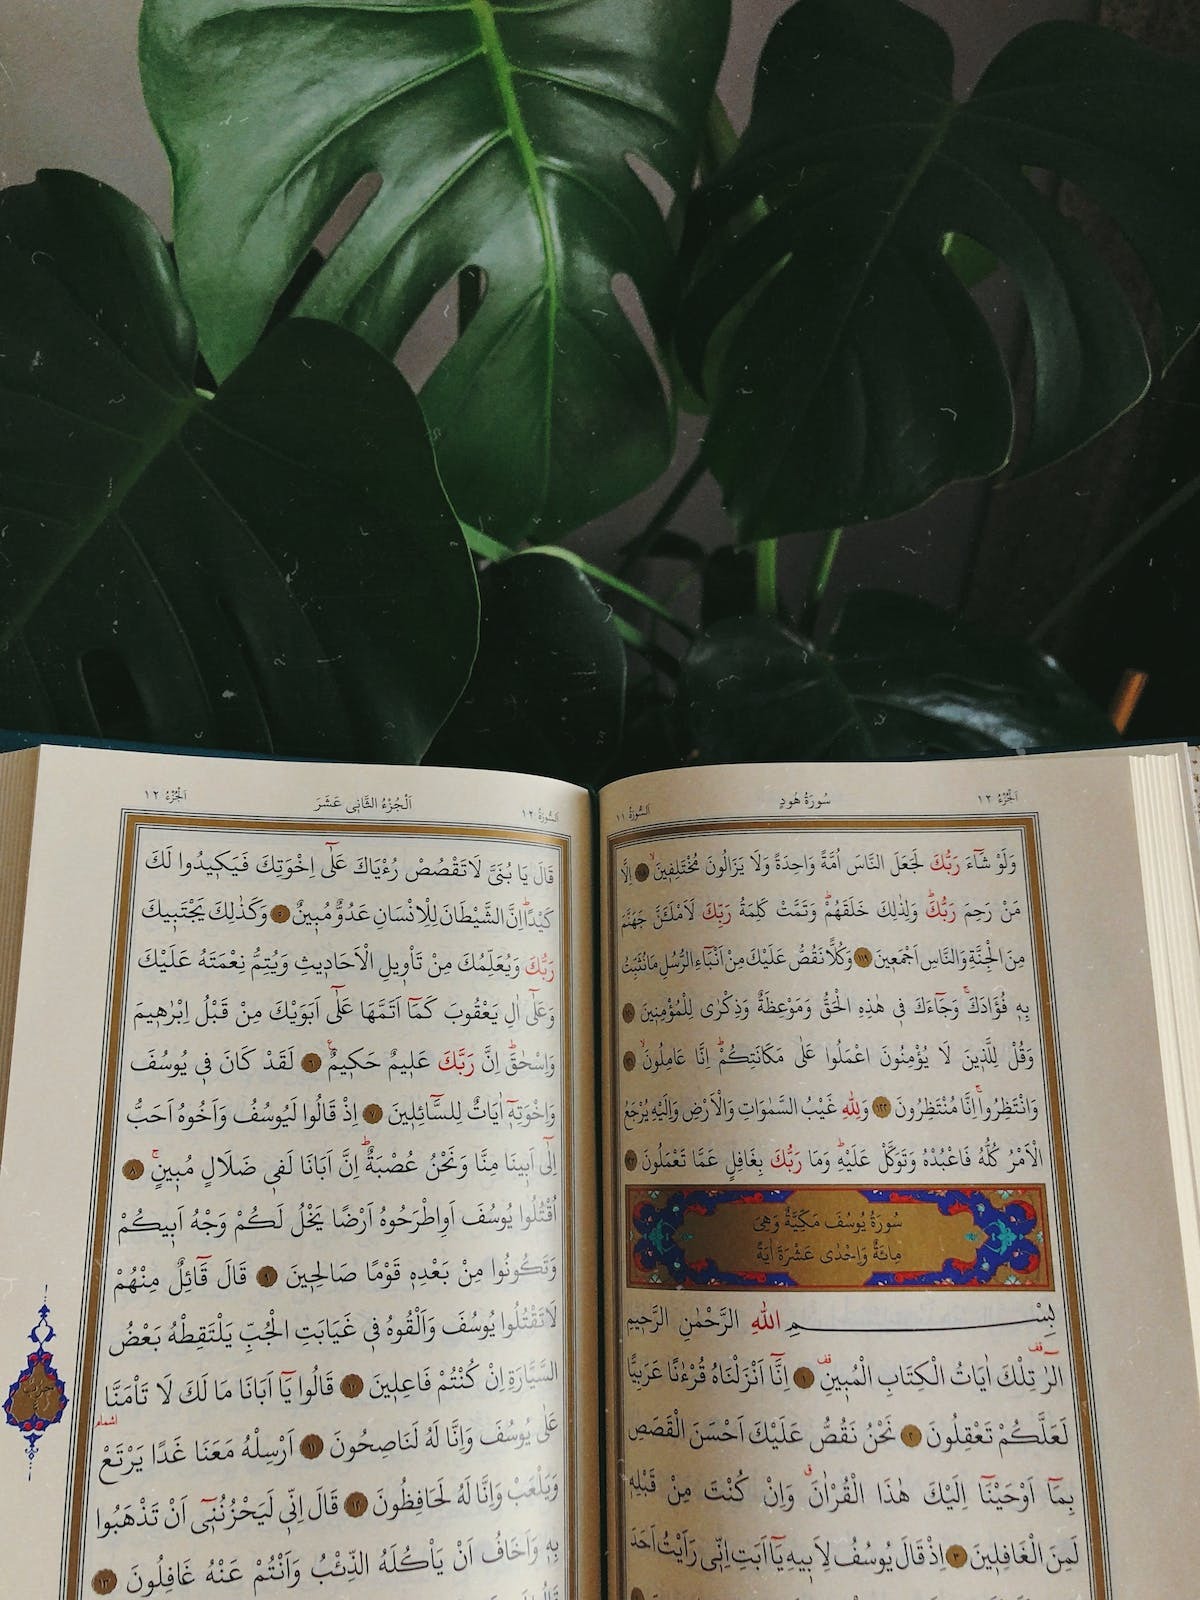 سُورَةُ هُودٍ
اَلْجُزْءُ ١٢
اَلسُّورَةُ ١١
وَلَوْ شَٓاءَ رَبُّكَ لَجَعَلَ النَّاسَ اُمَّةً وَاحِدَةً وَلَا يَزَالُونَ مُخْتَلِفٖينَۙ ١١٨ اِلَّا
مَنْ رَحِمَ رَبُّكَؕ وَلِذٰلِكَ خَلَقَهُمْؕ وَتَمَّتْ كَلِمَةُ رَبِّكَ لَاَمْلَـَٔنَّ جَهَنَّمَ
مِنَ الْجِنَّةِ وَالنَّاسِ اَجْمَعٖينَ ١١٩ وَكُلًّا نَقُصُّ عَلَيْكَ مِنْ اَنْبَٓاءِ الرُّسُلِ مَا نُثَبِّتُ
بِهٖ فُؤٰادَكَۚ وَجَٓاءَكَ فٖي هٰذِهِ الْحَقُّ وَمَوْعِظَةٌ وَذِكْرٰى لِلْمُؤْمِنٖينَ ١٢٠
وَقُلْ لِلَّذٖينَ لَا يُؤْمِنُونَ اعْمَلُوا عَلٰى مَكَانَتِكُمْؕ اِنَّا عَامِلُونَۙ ١٢١
وَانْتَظِرُواۚ اِنَّا مُنْتَظِرُونَ ١٢٢ وَلِلّٰهِ غَيْبُ السَّمٰوَاتِ وَالْاَرْضِ وَاِلَيْهِ يُرْجَعُ
الْاَمْرُ كُلُّهُ فَاعْبُدْهُ وَتَوَكَّلْ عَلَيْهِؕ وَمَا رَبُّكَ بِغَافِلٍ عَمَّا تَعْمَلُونَ ١٢٣
سُورَةُ يُوسُفَ مَكِّيَّةٌ وَهِيَ
مِائَةٌ وَاِحْدٰى عَشْرَةَ اٰيَةً
بِسْمِ اللّٰهِ الرَّحْمٰنِ الرَّحٖيمِ
الٓرٰ۠ تِلْكَ اٰيَاتُ الْكِتَابِ الْمُبٖينِ۠ ١ اِنَّٓا اَنْزَلْنَاهُ قُرْءٰنًا عَرَبِيًّا
لَعَلَّكُمْ تَعْقِلُونَ ٢ نَحْنُ نَقُصُّ عَلَيْكَ اَحْسَنَ الْقَصَصِ
بِمَٓا اَوْحَيْنَٓا اِلَيْكَ هٰذَا الْقُرْاٰنَۗ وَاِنْ كُنْتَ مِنْ قَبْلِهٖ
لَمِنَ الْغَافِلٖينَ ٣ اِذْ قَالَ يُوسُفُ لِاَبٖيهِ يَٓا اَبَتِ اِنّٖي رَاَيْتُ اَحَدَ
اَلْجُزْءُ الثَّانٖي عَشَرَ
اَلْجُزْءُ ١٢
اَلسُّورَةُ ١٢
قَالَ يَا بُنَيَّ لَا تَقْصُصْ رُءْيَاكَ عَلٰٓى اِخْوَتِكَ فَيَكٖيدُوا لَكَ
كَيْدًاؕ اِنَّ الشَّيْطَانَ لِلْاِنْسَانِ عَدُوٌّ مُبٖينٌ ٥ وَكَذٰلِكَ يَجْتَبٖيكَ
رَبُّكَ وَيُعَلِّمُكَ مِنْ تَأْوٖيلِ الْاَحَادٖيثِ وَيُتِمُّ نِعْمَتَهُ عَلَيْكَ
وَعَلٰٓى اٰلِ يَعْقُوبَ كَمَٓا اَتَمَّهَا عَلٰٓى اَبَوَيْكَ مِنْ قَبْلُ اِبْرٰهٖيمَ
وَاِسْحٰقَؕ اِنَّ رَبَّكَ عَلٖيمٌ حَكٖيمٌ ٦ لَقَدْ كَانَ فٖي يُوسُفَ
وَاِخْوَتِهٖٓ اٰيَاتٌ لِلسَّٓائِلٖينَ ٧ اِذْ قَالُوا لَيُوسُفُ وَاَخُوهُ اَحَبُّ
اِلٰٓى اَبٖينَا مِنَّا وَنَحْنُ عُصْبَةٌؕ اِنَّ اَبَانَا لَفٖي ضَلَالٍ مُبٖينٍۚ ٨
اُقْتُلُوا يُوسُفَ اَوِ اطْرَحُوهُ اَرْضًا يَخْلُ لَكُمْ وَجْهُ اَبٖيكُمْ
وَتَكُونُوا مِنْ بَعْدِهٖ قَوْمًا صَالِحٖينَ ٩ قَالَ قَٓائِلٌ مِنْهُمْ
لَا تَقْتُلُوا يُوسُفَ وَاَلْقُوهُ فٖي غَيَابَتِ الْجُبِّ يَلْتَقِطْهُ بَعْضُ
السَّيَّارَةِ اِنْ كُنْتُمْ فَاعِلٖينَ ١٠ قَالُوا يَٓا اَبَانَا مَا لَكَ لَا تَأْمَنَّا
اشمام
عَلٰى يُوسُفَ وَاِنَّا لَهُ لَنَاصِحُونَ ١١ اَرْسِلْهُ مَعَنَا غَدًا يَرْتَعْ
وَيَلْعَبْ وَاِنَّا لَهُ لَحَافِظُونَ ١٢ قَالَ اِنّٖي لَيَحْزُنُنٖٓي اَنْ تَذْهَبُوا
بِهٖ وَاَخَافُ اَنْ يَأْكُلَهُ الذِّئْبُ وَاَنْتُمْ عَنْهُ غَافِلُونَ ١٣
حزب